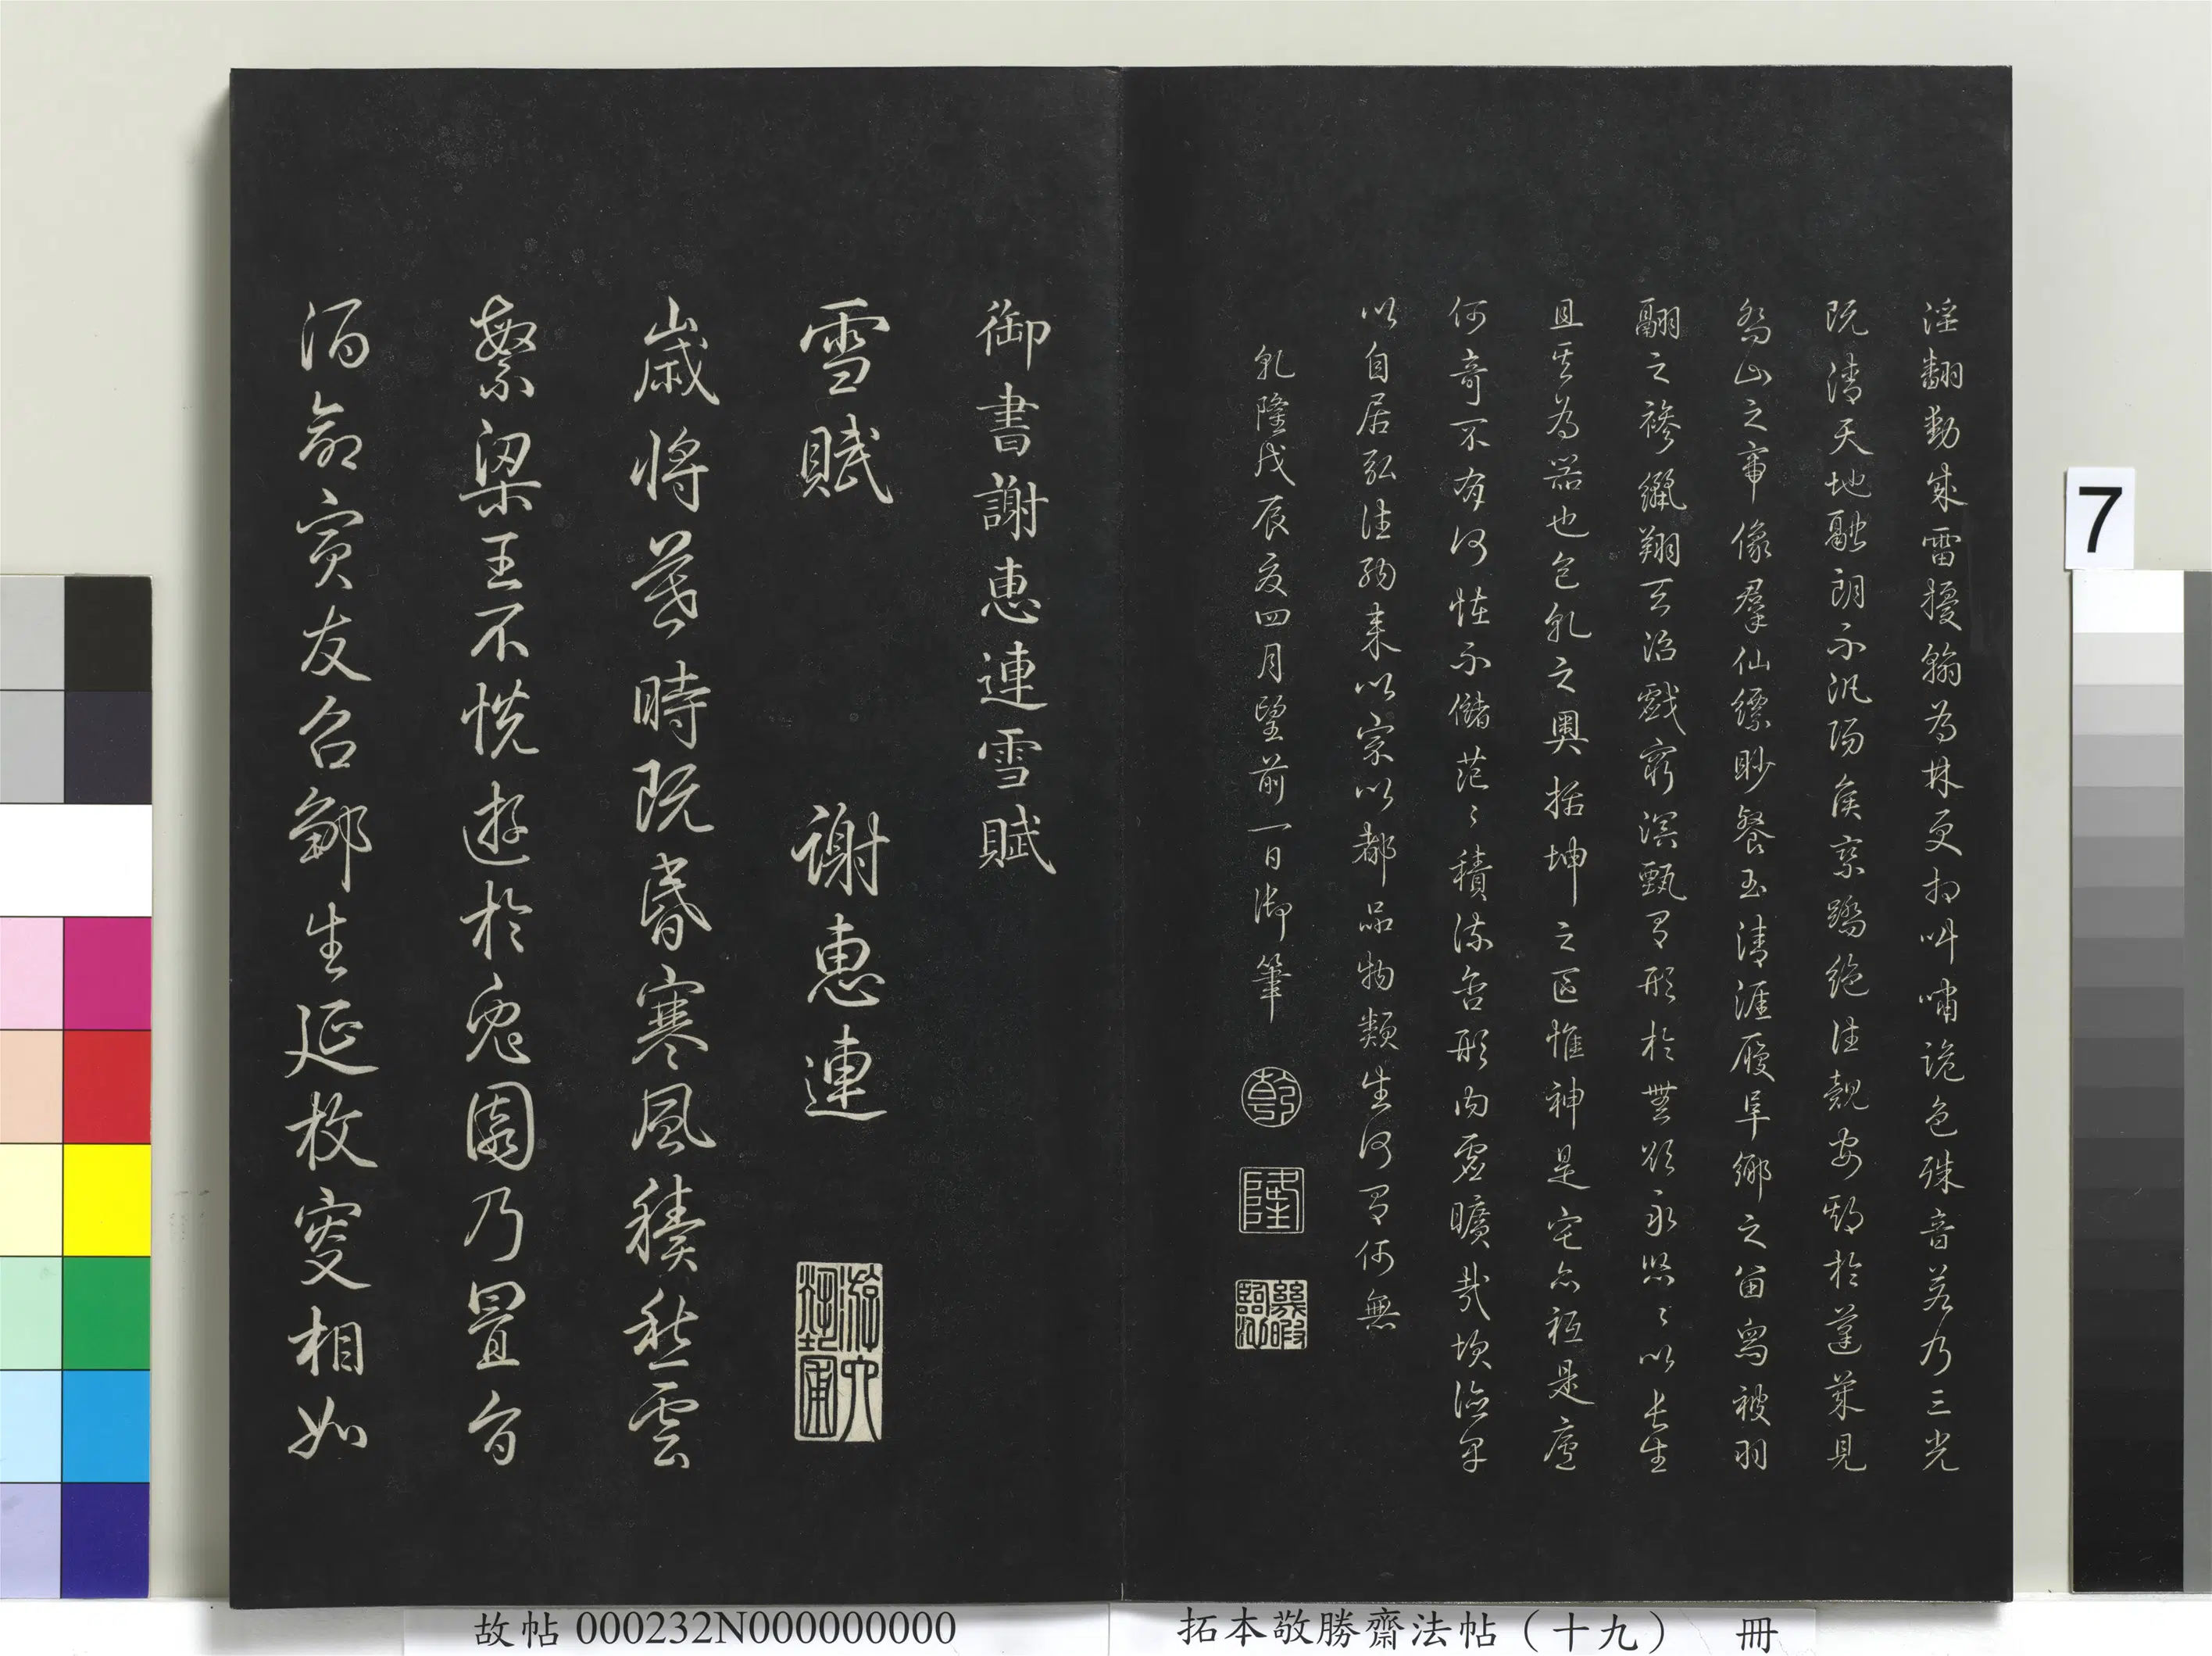 淫翻動成雷擾翰為林更相叫嘯詭色殊音若乃三光
既清天地融朗不汎陽侯乘蹻絕往覿安期於蓬萊見
喬山之帝像羣仙縹眇餐玉清涯履阜鄉之留舄被羽
翮之襂纚翔天沼戲窮溟甄有形於無欲永悠〻以長生
且其為器也包乾之奧括坤之區惟神是宅亦祗是廬
何奇不有何怪不儲茫〻積流含形內虛曠哉坎德卑
以自居弘往納來以宗以都品物類生何有何無
乾隆戊辰夏四月望前一日御筆
乾
隆
幾暇臨池
御書謝惠連雪賦
雪賦 謝惠連
游六藝圃
歲將暮時既昏寒風積愁雲
繁梁王不悅遊於兔園乃置旨
酒命賓友召鄒生延枚叟相如
7
故帖 000232N000000000 拓本敬勝齋法帖(十九) 冊